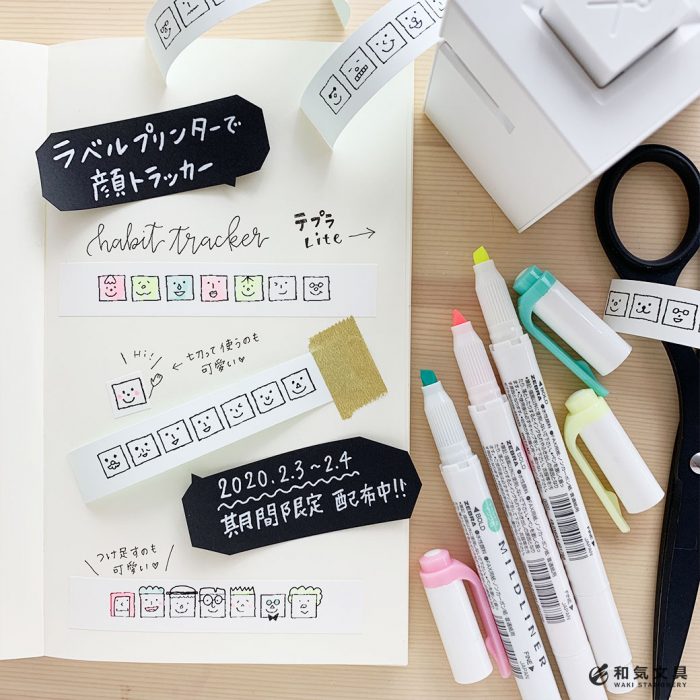 ラベルプリンターで
顔トラッカー
habit tracker
テプラ
Lite →
Hi!
← 切って使うのも
可愛い♡
2020.2.3~2.4
期間限定 配布中!!
つけ足すのも
可愛い♡
ZEBRA
ZEBRA
ZEBRA
BOLD
MILDLINER
FINE
JAPAN
FINE
JAPAN
和気文具
WAKI STATIONERY